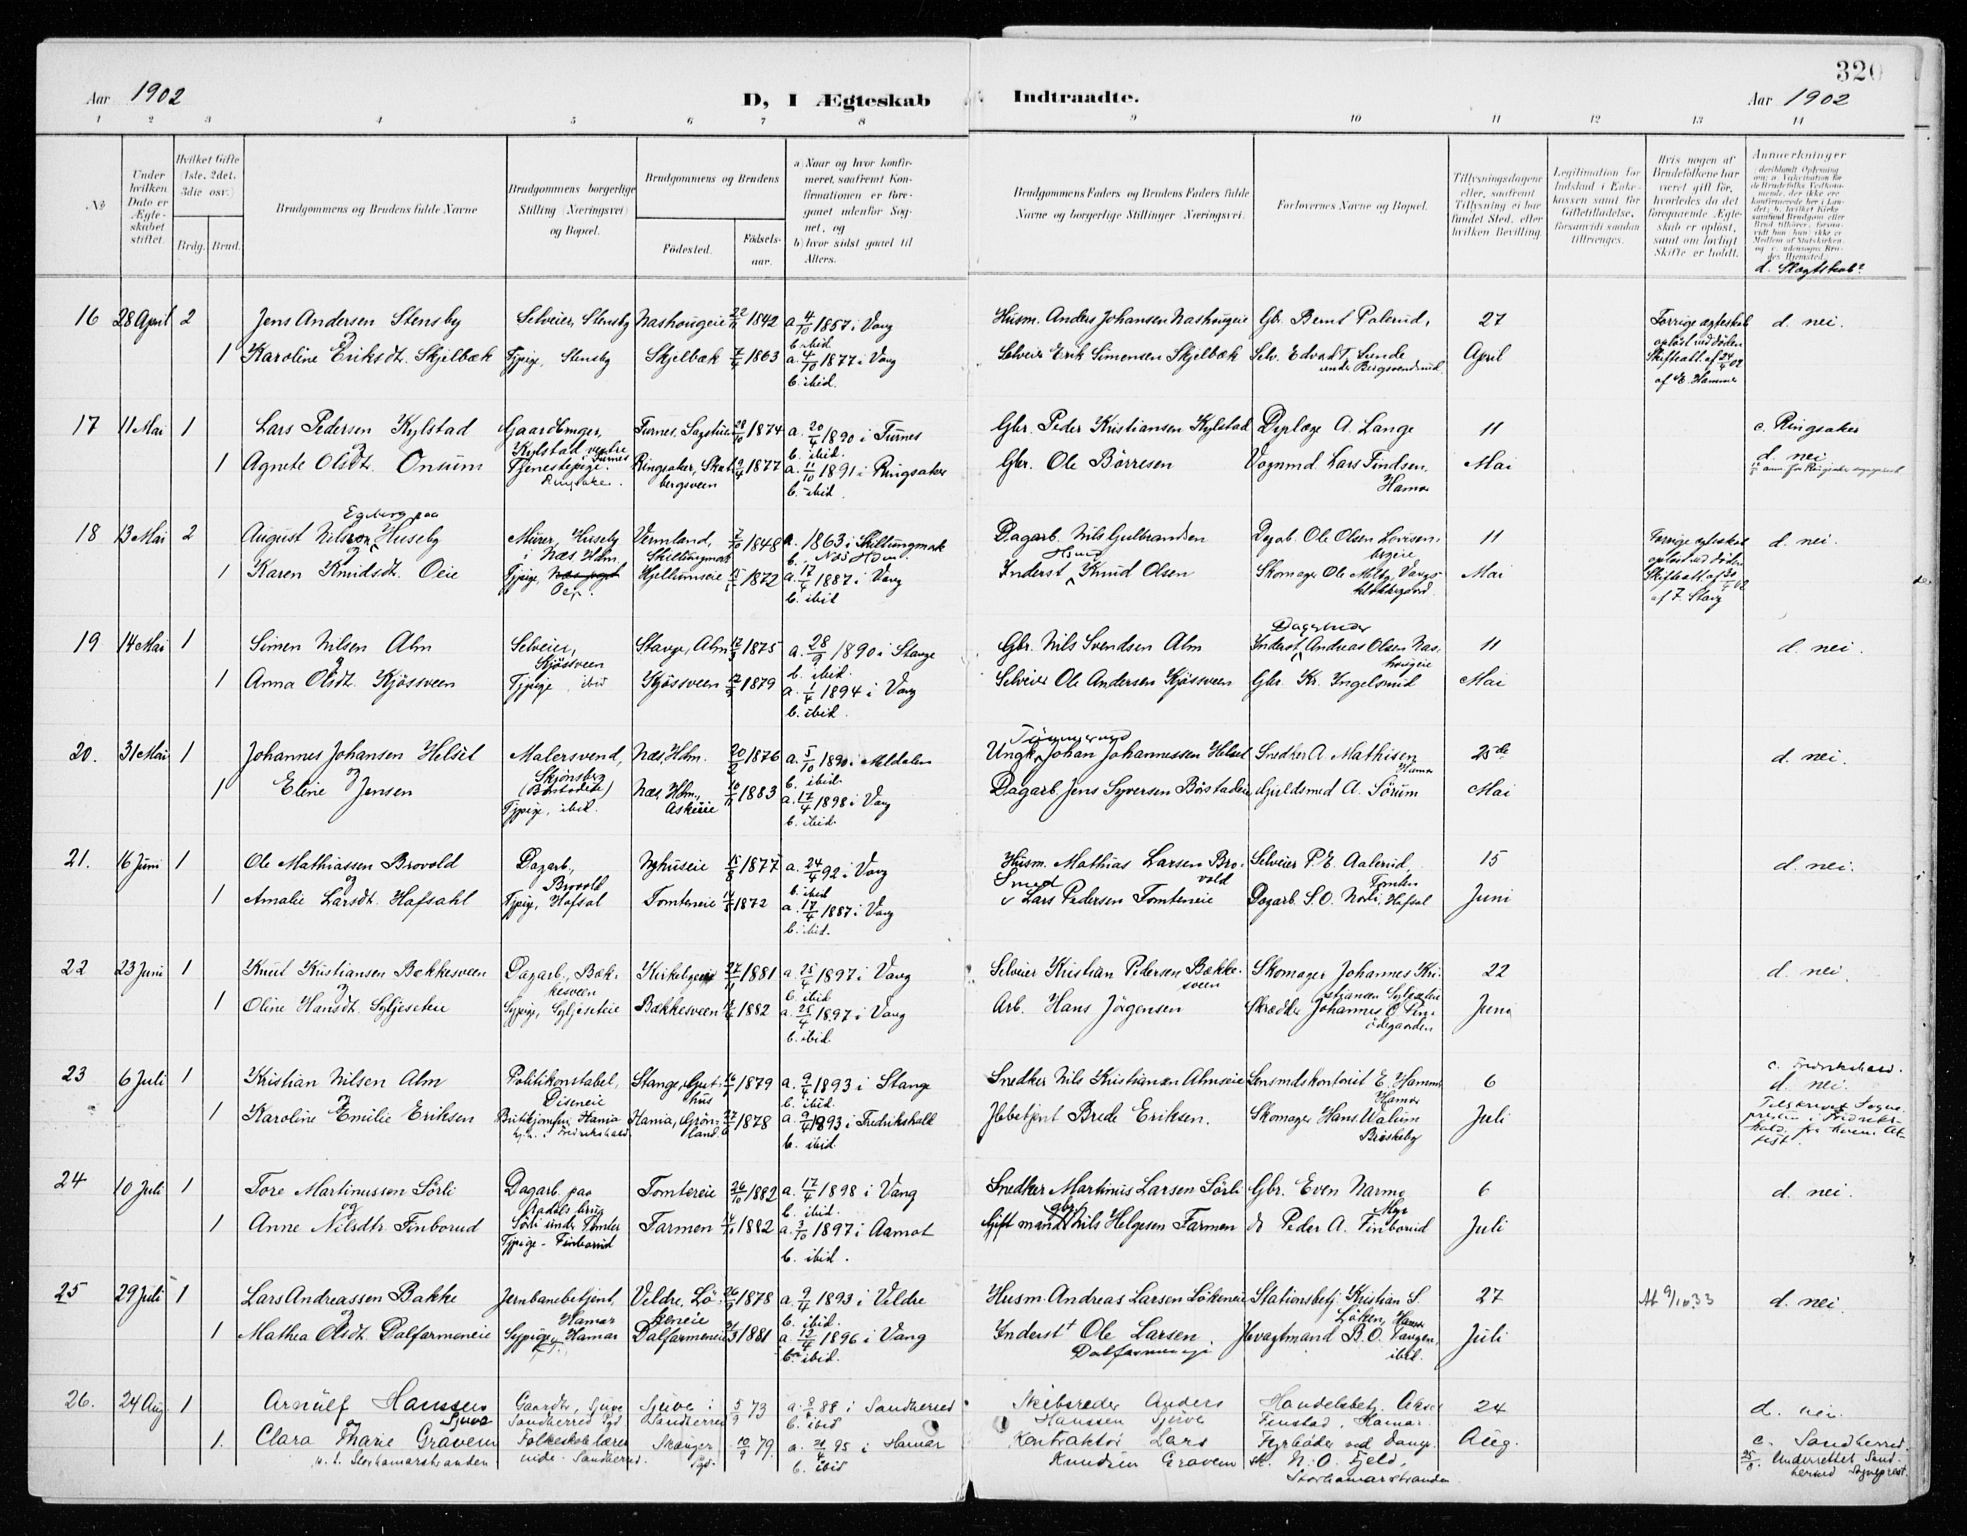 320
Aar 1902
D, I Ægteskab
Indtraadte.
Aar 1902
1 2 3 4 5 6 7 8 9 10 11 12 13 14
№
Under hvilken Dato er Ægteskabet stiftet.
Hvilket Gifte (1ste, 2det, 3die osv.)
Brdg. Brud.
Brudgommens og Brudens fulde Navne
Brudgommens borgerlige Stilling (Næringsvei) og Bopæl.
Brudgommens og Brudens
Fødested.
Fødselsaar.
a) Naar og hvor konfirmeret, saafremt Konfirmationen er foregaaet udenfor Sognet, og
b) hvor sidst gaaet til Alters.
Brudgommens Faders og Brudens Faders fulde Navne og borgerlige Stillinger (Næringsvei).
Forlovernes Navne og Bopæl.
Tillysningsdagene eller, saafremt Tillysning ei har fundet Sted, efter hvilken Bevilling.
Legitimation for Indskud i Enkekassen samt for Giftetilladelse, forsaavidt saadan tiltrænges.
Hvis nogen af Brudefolkene har været gift før, hvorledes da det foregaaende Ægteskab er opløst, samt om lovligt Skifte er holdt.
Anmerkninger
d. Slægtskab?
16 28 April 2 Jens Andersen Stensby Selveier, Stensby Nashougeie 22/11 1842 a. 4/10 1857 i Vang Husm. Anders Johansen Nashougeie Gb. Bernt Palerud, 27 Forrige ægteskab d. nei.
og b. ibid opløst ved døden
1 Karoline Eriksdt. Skjelbæk Tjpige, Stensby Skjelbæk 7/4 1863 a. 4/10 1877 i Vang Selveier Erik Simensen Skjelbæk Selv. Edvad T. Lunde April Skifteatt. af 24/4 02
b. ibid. under Bergsvendsrud af E. Hammer
17 11 Mai 1 Lars Pedersen Kylstad Gaardbruger, Furnes, Sagstuen 28/10 1874 a. 20/4 1890 i Furnes Gbr. Peder Kristiansen Kylstad Dyrlæge A. Lange 11 c. Ringsaker
og Kylstad vestre Furnes b. ibid. d. nei.
1 Agnete Olsdt. Onsum Tjenestepige. Ringsaker, Skatbergsveen 19/4 1877 a. 11/10 1891 i Ringsaker Gbr. Ole Börresen Vognmd Lars Findsen, Mai
Ringsaker. b. ibid. Hamar
18 13 Mai 2 August Nilsson Engberg paa Huseby Murer, Huseby i Næs Hdm. Vermland, 2/10 1848 a. 1863 i Skillingmark Dagarb. Nils Gulbrandsen Dgab. Ole Olsen Lovisenbergeie 11 Forrige ægteskab d. nei.
og Skillingmark b. Næs Hdm. opløst ved døden
1 Karen Knudsdt. Oeie Tjpige, Oei. Hjellumeie 1872 a. 17/4 1887 i Vang Inderst Husmd Knud Olsen Skomager Ole Melby, Vangs klokkergaard Mai Skifteatt. af 30/4 02
b. ibid af F. Stang
19 14 Mai 1 Simen Nilsen Alm Selveier, Stange, Alm 12/3 1875 a. 28/9 1890 i Stange Gbr. Nils Svendsen Alm Inderst Dagarbeider Andreas Olsen Nashougeie 11 d. nei.
og Kjösveen b. ibid.
1 Anna Olsdt. Kjösveen Tjpige, ibid Kjösveen 1879 a. 1/4 1894 i Vang Selveier Ole Andersen Kjösveen Gbr. Kr. Ingelsrud Mai
b. ibid.
20. 31 Mai 1 Johannes Johansen Helset Malersvend, Næs, Hdm. 20/2 1876 a. 5/10 1890 i Meldalen Ungk. Tømmermd Johan Johannessen Helset Snedker A. Mathisen 25de d. nei.
og Skjönsberg (Börstadeie) b. ibid. Hamar
1 Eline Jensen Tjpige, ibid. Næs, Hdm., Askereie 10/11 1883 a. 17/4 1898 i Vang Dagarb. Jens Syversen Börstadeie Guldsmed A. Sörum Mai
b. ibid.
21. 16 Juni 1 Ole Mathiassen Brovold Dagarb., Nyhuseie 15/8 1877 a. 24/4 92 i Vang Husm. Mathias Larsen Brovold Selveier P. E. Aalerud 15 d. nei.
og Brovold b. ibid Tomter
1 Amalie Larsdt. Hafsahl Tjpige, Hafsal Tomteneie 1872 a. 17/4 1887 i Vang Smed Lars Pedersen Tomteneie Dagarb. S. O. Norli, Hafsal Juni
b. ibid.
22 23 Juni 1 Knut Kristiansen Bækkesveen Dagarb., Bækkesveen Kirkebyeie 1881 a. 25/4 1897 i Vang Selveier Kristian Pedersen Bækkesveen Skomager Johannes Kristiansen Syljeseteie 22 d. nei.
og b. ibid
1 Oline Hansdt. Syljeseteie Sypige, Syljeseteie Bækkesveen 1882 a. 25/4 1897 i Vang Arb. Hans Jörgensen Skrædder Johannes O. Juni
b. ibid. ödegaarden
23 6 Juli 1 Kristian Nilsen Alm Politikonstabel, Stange, 16/7 1879 a. 9/4 1893 i Stange Snedker Nils Kristiansen Almseie Lensmdskontorist E. Hammer 6 c. Fredrikshald.
og Diseneie b. ibid Hamar d. nei.
1 Karoline Emilie Eriksen Butikjomfru, Hamar Fredrikshald Hamar, Grönland 1878 a. 9/4 1893 i Fredrikshald Brede Eriksen. Skomager Hans Walum Juli Tilskrevet Sognepresten i Fredrikshald
b. ibid. Briskeby
24 10 Juli 1 Tore Martinussen Sörli Dagarb. paa Aadals brug Tomtereie 26/10 1882 a. 17/4 1898 i Vang Snedker Martinus Larsen Sörli Gbr. Even Narmo 6 d. nei.
og Sörli under Tomter b. ibid.
1 Anne Nilsdtr. Finborud Tjpige - Finborud Farmen 1882 a. 3/10 1897 i Aamot Nils Helgesen Farmen Peder A. Finborud Juli
b. ibid.
25 29 Juli 1 Lars Andreassen Bakke Jernbanebetjent, Veldre, Lökeneie 26/9 1878 a. 9/4 1893 i Veldre Husm. Andreas Larsen Lökeneie Stationsbetj. Kristian S. Löken, Hamar 27 d. nei.
og Hamar b. ibid.
1 Mathea Olsdt. Dalfarmeneie Sypige, Hamar Dalfarmeneie 1881 a. 1896 i Vang Inderst Ole Larsen Dalfarmeneie B. O. Tangen, ibid. Juli
b. ibid.
26. 24 Aug. 1 Arnulf Hanssen Sjuve Gaardbr, Sjuve Sandherred Sjuve i Sandherred 5/9 73 a. 88 i Sandherred Skibsreder Anders Hanssen Sjuve Handelsbetj. Aksel Finstad, Hamar. 24 d. nei.
og b. ibid
1. Clara Marie Gravem Folkeskolelærerinde. Sandherred. Stavanger 10/9 79. a. 95 i Hamar Kontraktör Lars Knudsen Gravem Fyrböder ved N. O. Fjeld, Storhamarstranden Aug. c. Sandherred.
Storhamarstranden b. ibid Underrettet Sandherred Sogneprest.